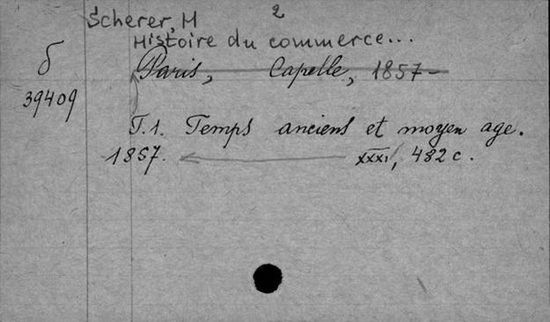 Scherer, H 2
Histoire du commerce...
б Paris, Capelle, 1857-
39409
T.1. Temps anciens et moyen age.
1857. xxxi, 482 c.